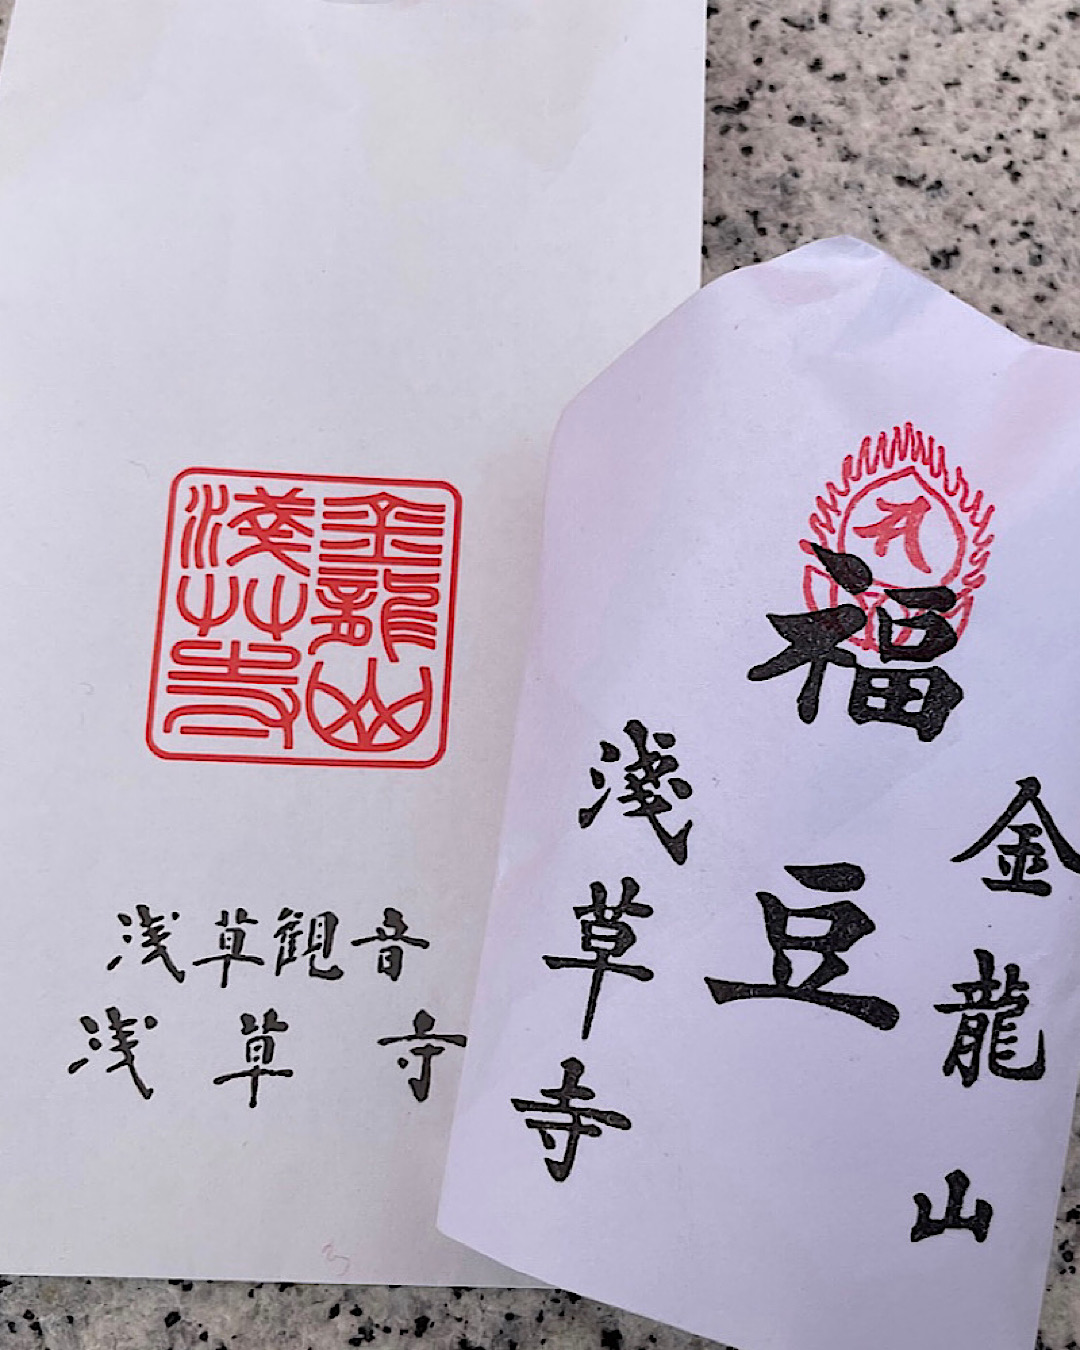 金龍山
淺草寺
浅草観音
浅草寺
金龍山
福豆
淺草寺